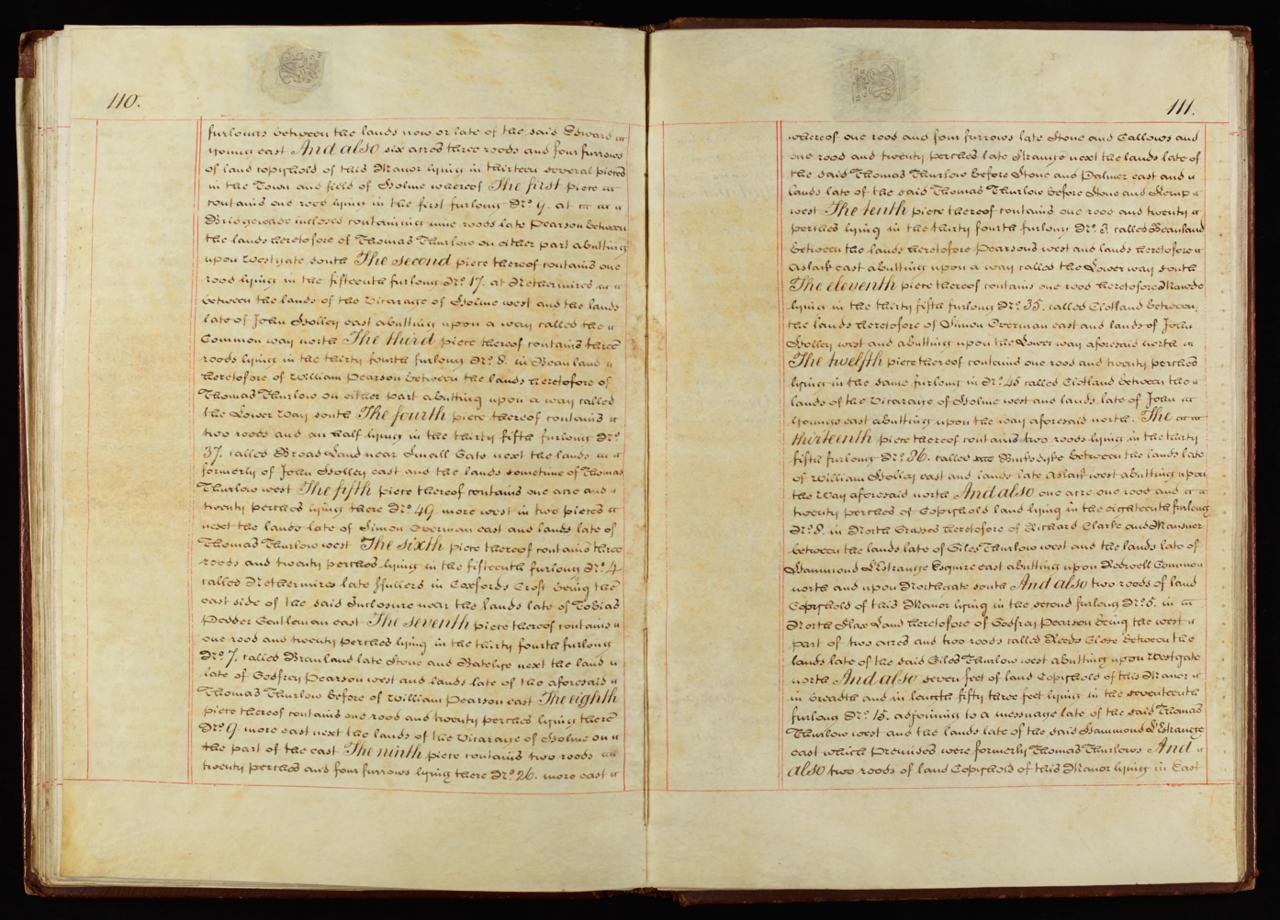 110.
furlongs between the lands now or late of the said Edward
Young east And also six acres three roods and four furrows
of land copyhold of this Manor lying in thirteen several pieces
in the Town and field of Holme whereof The first piece
contains one rood lying in the first furlong No. 9. at
Bridgewade inclosed containing nine roods late Pearson between
the lands heretofore of Thomas Thurlow on either part abutting
upon Westgate south The second piece thereof contains one
rood lying in the fifteenth furlong No. 17. at Nethermires
between the lands of the Vicarage of Holme west and the lands
late of John Holley east abutting upon a way called the
Common way north The third piece thereof contains three
roods lying in the thirty fourth furlong No. 8. in Beanland
heretofore of William Pearson between the lands heretofore of
Thomas Thurlow on either part abutting upon a way called
the Lower Way south The fourth piece thereof contains
two roods and an half lying in the thirty fifth furlong No.
37. called Broad Land near Small Gate next the lands
formerly of John Holley east and the lands sometime of Thomas
Thurlow west The fifth piece thereof contains one acre and
twenty perches lying there No. 49. more west in two pieces
next the lands late of Simon Overman east and lands late of
Thomas Thurlow west The sixth piece thereof contains three
roods and twenty perches lying in the fifteenth furlong No. 4
called Nethermires late in Croft being the
east side of the said Inclosure near the lands late of Tobias
Pedder Gentleman east The seventh piece thereof contains
one rood and twenty perches lying in the thirty fourth furlong
No. 7. called Branland late Stone and next the land
late of Godfrey Pearson west and lands late of the aforesaid
Thomas Thurlow before of William Pearson east The eighth
piece thereof contains one rood and twenty perches lying there
No. 9. more east next the lands of the Vicarage of Holme on
the part of the east The ninth piece contains two roods
twenty perches and four furrows lying there No. 26. more east
111.
whereof one rood and four furrows late Stone and Gallows and
one rood and twenty perches late Strange next the lands late of
the said Thomas Thurlow before Stone and Palmer east and
lands late of the said Thomas Thurlow before Stone and
west The tenth piece thereof contains one rood and twenty
perches lying in the thirty fourth furlong No. 3. called Beanland
between the lands heretofore Pearsons west and lands heretofore
Aslack east abutting upon a way called the Lower way south
The eleventh piece thereof contains one rood heretofore
lying in the thirty fifth furlong No. 35. called Clotland between
the lands heretofore of Simon Overman east and lands of John
Holley west and abutting upon the Lower way aforesaid north
The twelfth piece thereof contains one rood and twenty perches
lying in the same furlong in No. 45 called Clotland between the
lands of the Vicarage of Holme west and lands late of John
Youngs east abutting upon the way aforesaid north. The
thirteenth piece thereof contains two roods lying in the thirty
fifth furlong No. 36. called between the lands late
of William Holley east and lands late Aslack west abutting upon
the Way aforesaid north And also one acre one rood and
twenty perches of Copyhold land lying in the eighteenth furlong
No. 8. in North Crosses heretofore of Richard Clarke and
between the lands late of Giles Thurlow west and the lands late of
Hammond L'Estrange Esquire east abutting upon Redwell Common
north and upon Northgate south And also two roods of land
Copyhold of this Manor lying in the second furlong No. 5. in
North Flax Land heretofore of Godfrey Pearson being the west
part of two acres and two roods called Reeds Close between the
lands late of the said Giles Thurlow west abutting upon Westgate
north And also seven feet of land Copyhold of this Manor
in breadth and in length fifty three feet lying in the seventeenth
furlong No. 15. adjoining to a messuage late of the said Thomas
Thurlow west and the lands late of the said Hammond L'Estrange
east which Premises were formerly Thomas Thurlows And
also two roods of land Copyhold of this Manor lying in East